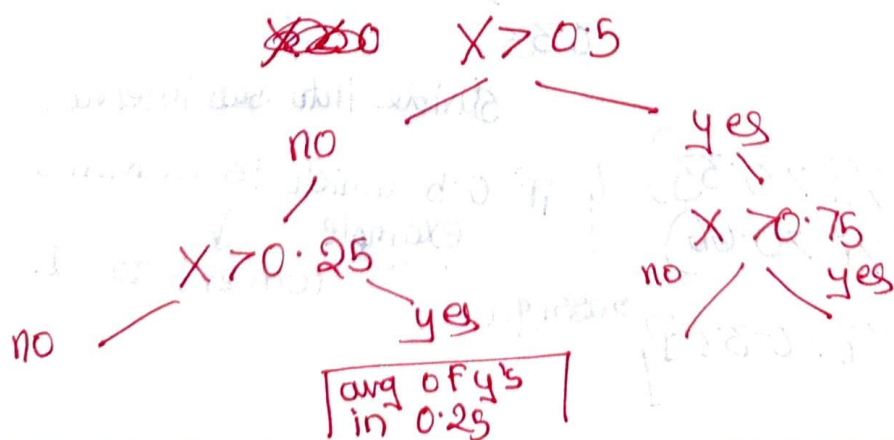 X > 0.5
no
yes
X > 0.25
X > 0.75
no
yes
no
yes
avg of y's
in 0.25